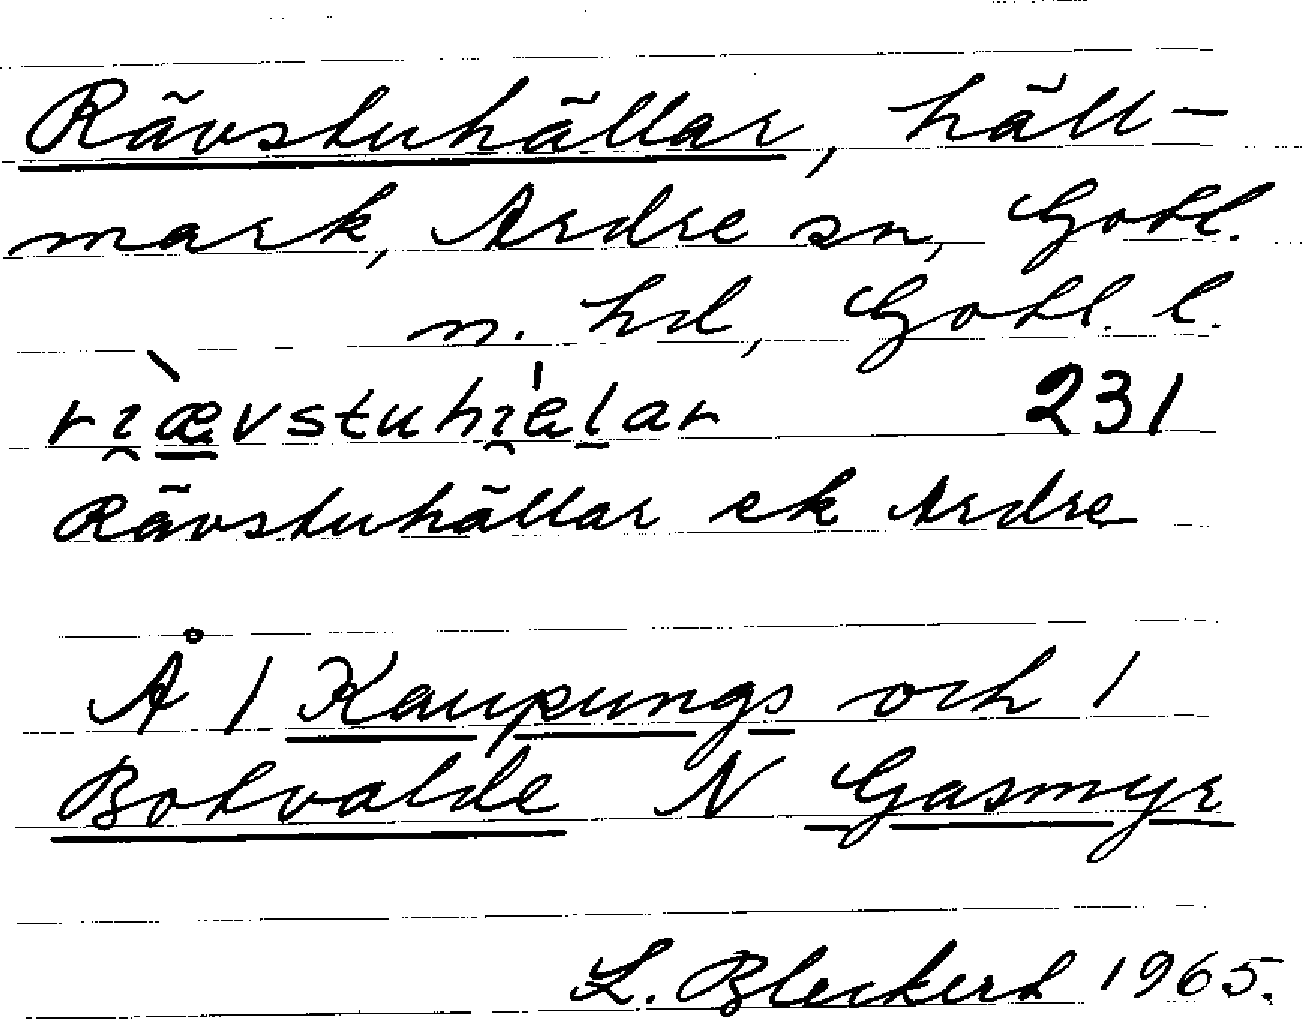 Rävstuhällar, häll-
mark, Ardre sn, Gotl.
n. hd, Gotl. l.
rı̯æ̀vstuhı̯e̍lar 231
Rävstuhällar ek Ardre
Å 1 Kaupungs och 1
Botvalde N Gasmyr
L. Bleckert 1965.